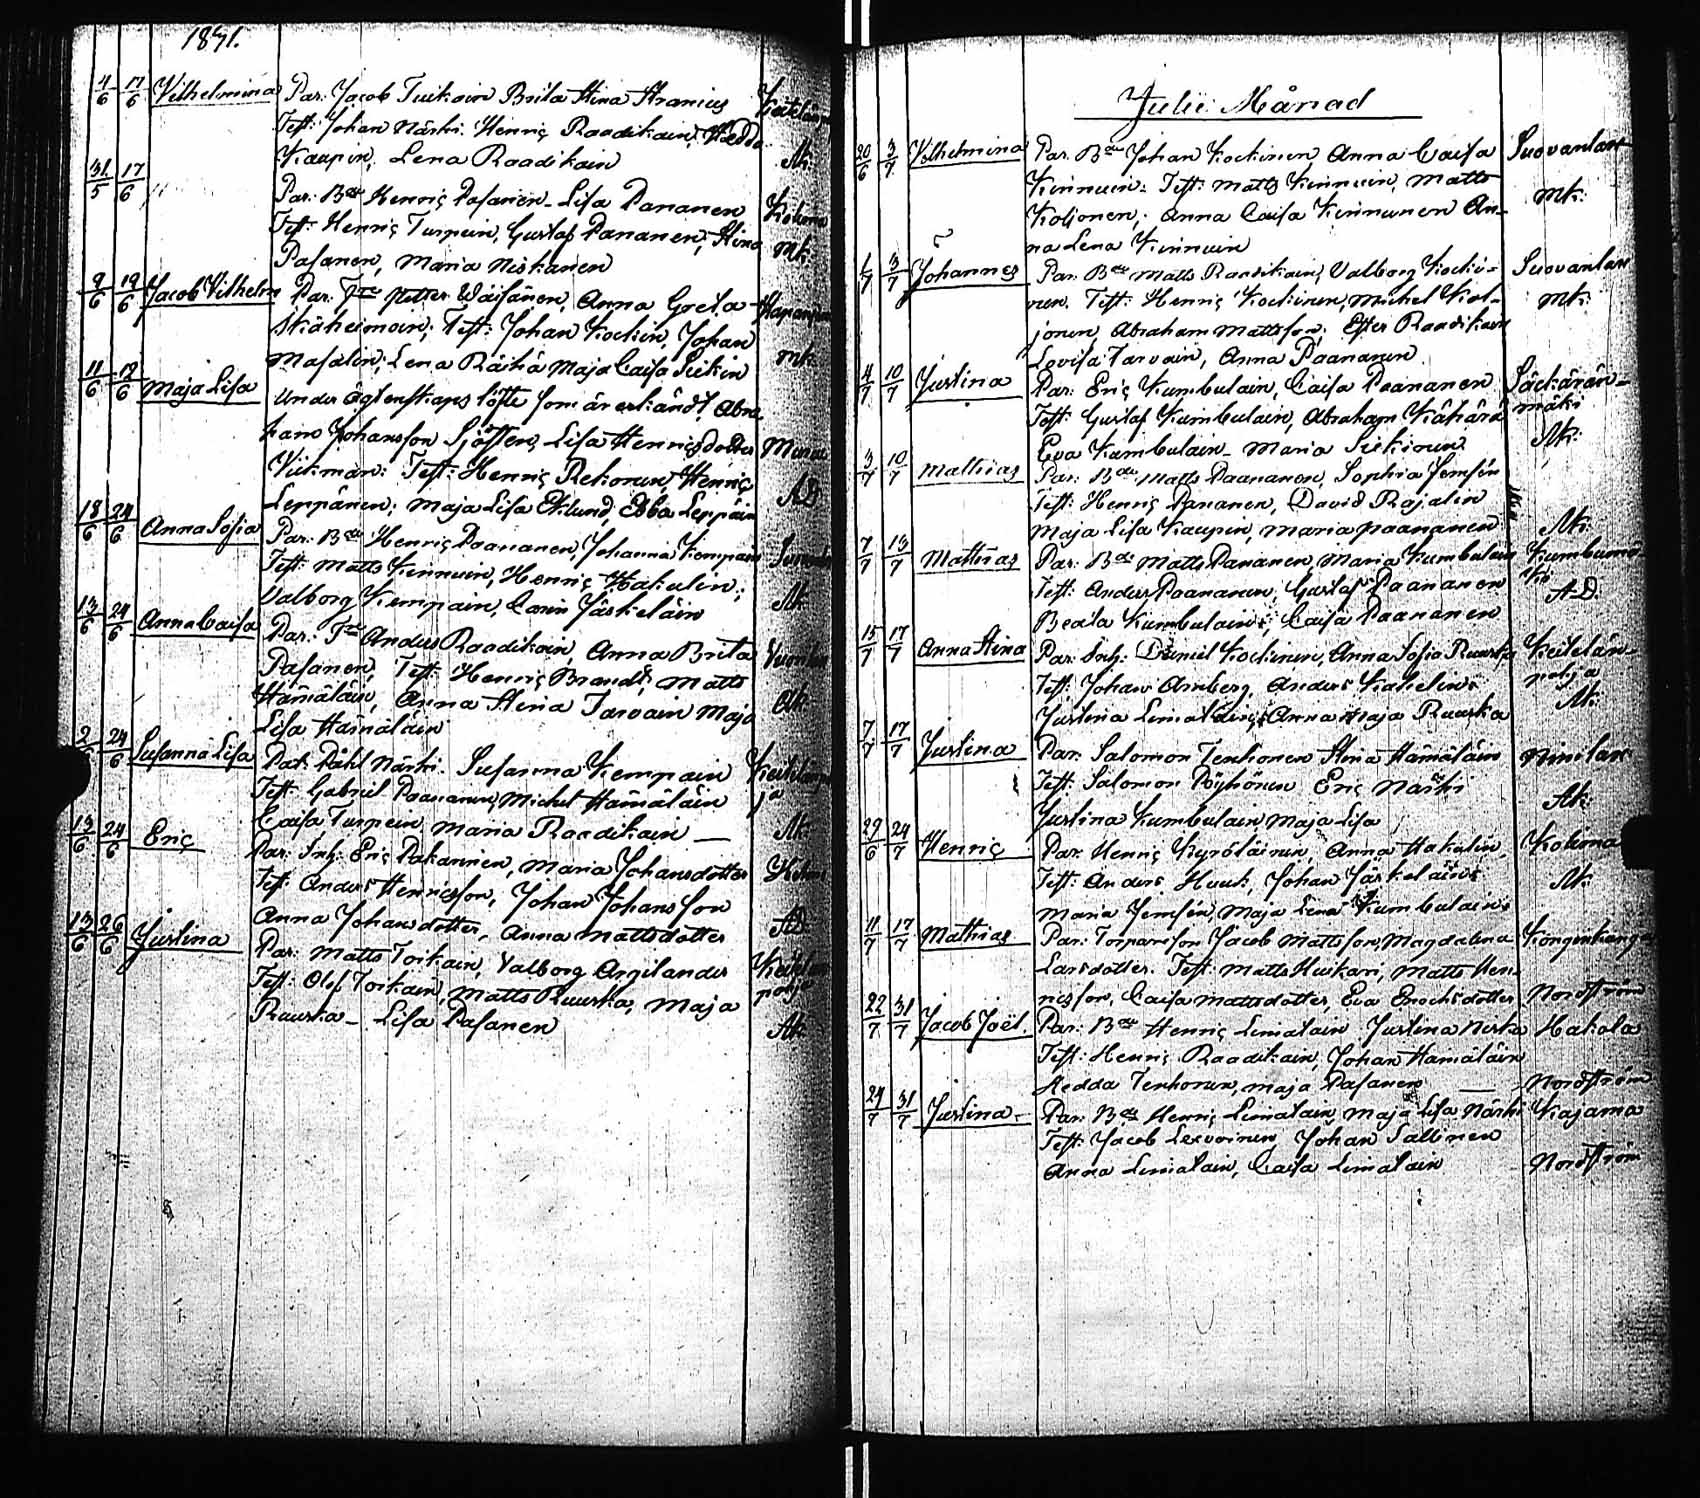 1841.
4/6 17/6 Vilhelmina Par: Jacob Tuikain Brita Stina Aranius
Test: Johan Närhi Henric Raadikain, Hedda
Kaupin, Lena Raadikain Ak:
31/5 17/6 " Par: Bde Henric Pasanen - Lisa Pananen
Test: Henric Turpein, Gustaf Pananen, Stina Mk:
Pasanen, Maria Niskanen
9/6 19/6 Jacob Vilhelm Par: Petter Wäisänen, Anna Greta
Test: Johan Kockin, Johan
Masalin, Lena Räihä Maja Caisa Mk:
11/6 19/6 Maja Lisa Under Ägtenskaps löfte som är erkändt, Abra
hams Johansson Sjösten, Lisa Henricsdotter
Vikman: Test: Henric Rekonen, Henric
Leppänen, Maja Lisa Eklund, Ebba Leppäin AD
18/6 24/6 Anna Sofia Par: Bde Henric Paananen, Johanna Kempain
Test: Matts Kinnuin, Henric Hakulin,
Valborg Kempain, Carin Jäskeläin Ak
13/6 24/6 Anna Caisa Par: Anders Raadikain, Anna Brita
Pasanen, Test: Henric Brandt, Matts
Hämäläin, Anna Stina Tarvain Maja Ak:
Lisa Hämäläin
24/6 Susanna Lisa Par: Påhl Närhi. Susanna Kempain
Test: Gabriel Paananen, Michel Hämäläin
Caisa Turpein, Maria Raadikain — Ak:
13/6 24/6 Eric Par: Inh: Eric Pakarinen, Maria Johansdotter
Test: Anders Henricsson, Johan Johansson
Anna Johansdotter, Anna Mattsdotter AD
13/6 26/6 Justina Par: Matts Toikain, Valborg Argilander
Test: Olof Toikain, Matts Ruuska, Maja
Ruuska - Lisa Pasanen Ak
Julii Månad
20/6 3/7 Vilhelmina Par. Bde Johan Kockinen Anna Caisa Suovanlax
Kinnuin: Test: Matts Kinnuin, Matts
Koljonen, Anna Caisa Kinnunen An- Mk:
na Lena Kinnuin
1/7 3/7 Johannes Par: Bde Matts Raadikain, Valborg Kocki- Suovanlax
nen. Test: Henric Kockinen, Michel Kol- Mk:
jonen, Abraham Mattsson; Ester Raadikain
Lovisa Tarvain, Anna Paananen
4/7 10/7 Justina Par: Eric Kumbulain, Caisa Paananen Säckärän-
Test: Gustaf Kumbulain, Abraham Kähärä mäki
Eva Kumbulain - Maria Ak:
3/7 10/7 Mathias Par: Bde Matts Paananen, Sophia Jemsén
Test: Henric Pananen, David Rajalin
Maja Lisa Kaupin, Maria Paananen Ak:
7/7 13/7 Mathias Par: Bde Matts Pananen, Maria Kumbulain
Test: Anders Paananen, Gustaf Paananen AD.
Beata Kumbulain, Caisa Paananen
15/7 17/7 Anna Stina Par: Inh: Daniel Kockinen, Anna Sofia Ruuska Keitelän-
Test: Johan Arnberg, Anders pohja
Justina Limatain, Anna Maja Ruuska Ak:
7/7 17/7 Justina Par: Salomon Tenhonen Stina Hämäläin Niinilax
Test: Salomon Pöyhönen Eric Närhi
Justina Kumbulain Maja Lisa Ak:
29/6 24/7 Henric Par: Henric Kyröläinen, Anna Hakulin, Kolima
Test: Anders Huuk, Johan Jäskeläin Ak
Maria Jemsén, Maja Lena Kumbulain
11/7 17/7 Mathias Par: Torparesson Jacob Mattsson, Magdalena
Larsdotter. Test: Matts Huskari, Matts Hen-
ricsson, Caisa Mattsdotter, Eva Enochsdotter Nordström
22/7 31/7 Jacob Joël. Par: Bde Henric Limatain Justina Niska Hakola
Test: Henric Raadikain, Johan Hämäläin
Hedda Tenhonen, Maja Pasanen — Nordström
24/7 31/7 Justina - Par: Bde Henric Limatain, Maja Lisa Närhi Kajama
Test: Jacob Leivoinen, Johan Sallinen
Anna Limatain, Caisa Limatain Nordström